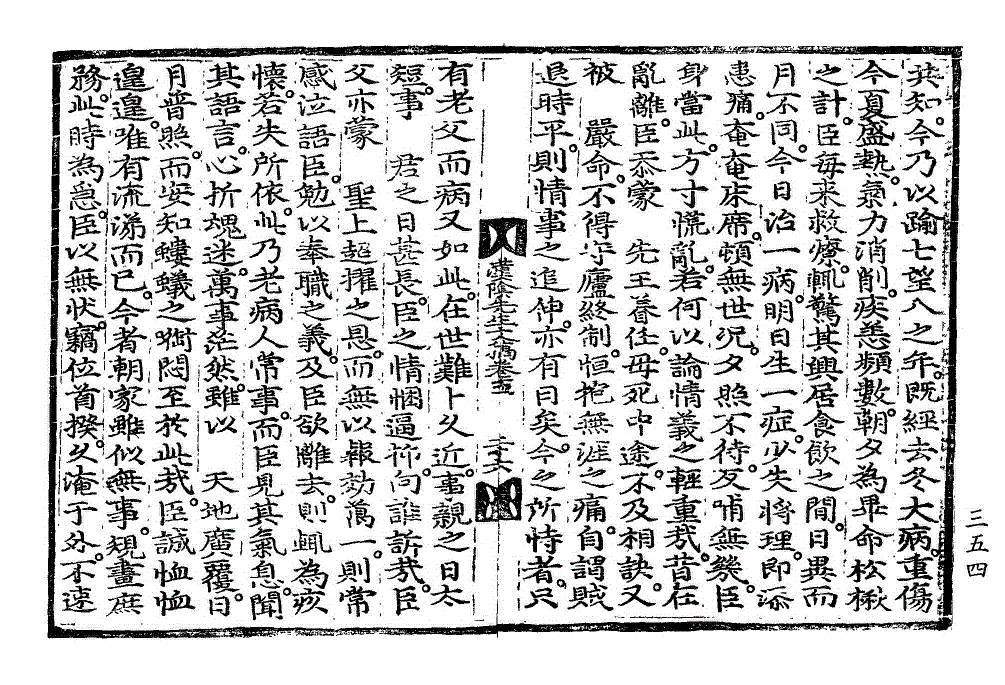 共知。今乃以踰七望八之年。旣經去冬大病。重傷
今夏盛熱。氣力消削。疾恙頻數。朝夕爲畢命松楸
之計。臣每來救療。輒驚其興居食飮之間。日異而
月不同。今日治一病。明日生一症。少失將理。即添
患痛。奄奄床席。頓無世況。夕照不待。反哺無幾。臣
身當此。方寸慌亂。若何以論情義之輕重哉。昔在
亂離。臣忝蒙 先王眷任。母死中途。不及相訣。又
被 嚴命。不得守廬終制。恒抱無涯之痛。自謂賊
退時平。則情事之追伸。亦有日矣。今之所恃者。只
漢陰先生文稿卷五 二十六
有老父而病又如此。在世難卜久近。事親之日太
短。事 君之日甚長。臣之情悃逼仰。向誰訴哉。臣
父亦蒙 聖上超擢之恩。而無以報効萬一。則常
感泣語臣。勉以奉職之義。及臣欲離去。則輒爲疚
懷。若失所依。此乃老病人常事。而臣見其氣息。聞
其語言。心折魂迷。萬事茫然。雖以 天地廣覆。日
月普照。而安知螻蟻之衷悶至於此哉。臣誠恤恤
遑遑。唯有流涕而已。今者朝家雖似無事。規畫庶
務。此時爲急。臣以無狀。竊位首揆。久淹于外。不速
三五四